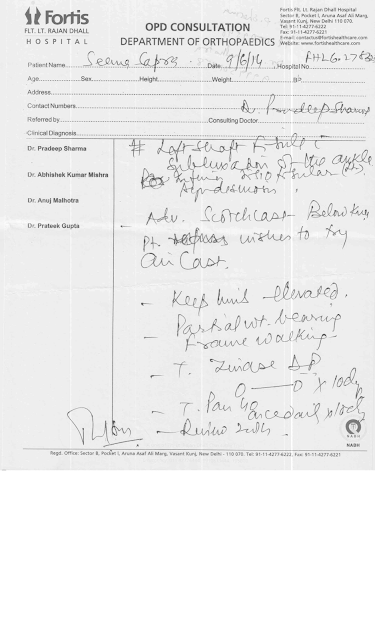 Fortis
FLT. LT. RAJAN DHALL
HOSPITAL
OPD CONSULTATION
DEPARTMENT OF ORTHOPAEDICS
Fortis Flt. Lt. Rajan Dhall Hospital
Sector B, Pocket I, Aruna Asaf Ali Marg,
Vasant Kunj, New Delhi - 110 070.
Tel: 91-11-4277-6222
Fax: 91-11-4277-6221
Website: www.fortishealthcare.com
Patient Name Seema Date: 9/6/14 Hospital No.
Age Sex Height Weight BP
Address
Contact Numbers
Referred by Consulting Doctor Dr. Pradeep Sharma
Clinical Diagnosis
Dr. Pradeep Sharma
Dr. Abhishek Kumar Mishra
Dr. Anuj Malhotra
Dr. Prateek Gupta
# Left shaft fibula c
subluxation of the ankle
Inferior tibio fibular
Adv. Scotchcast Below Knee
- Pt. wishes to try
air Cast.
- Keep limb elevated.
- Partial wt. bearing
Frame walking
- T. DP
0 — 0 x 10 days
- T. Pan 40 once daily x 10 days
- Review 2 wks.
NABH
Regd. Office: Sector B, Pocket I, Aruna Asaf Ali Marg, Vasant Kunj, New Delhi - 110 070. Tel: 91-11-4277-6222, Fax: 91-11-4277-6221